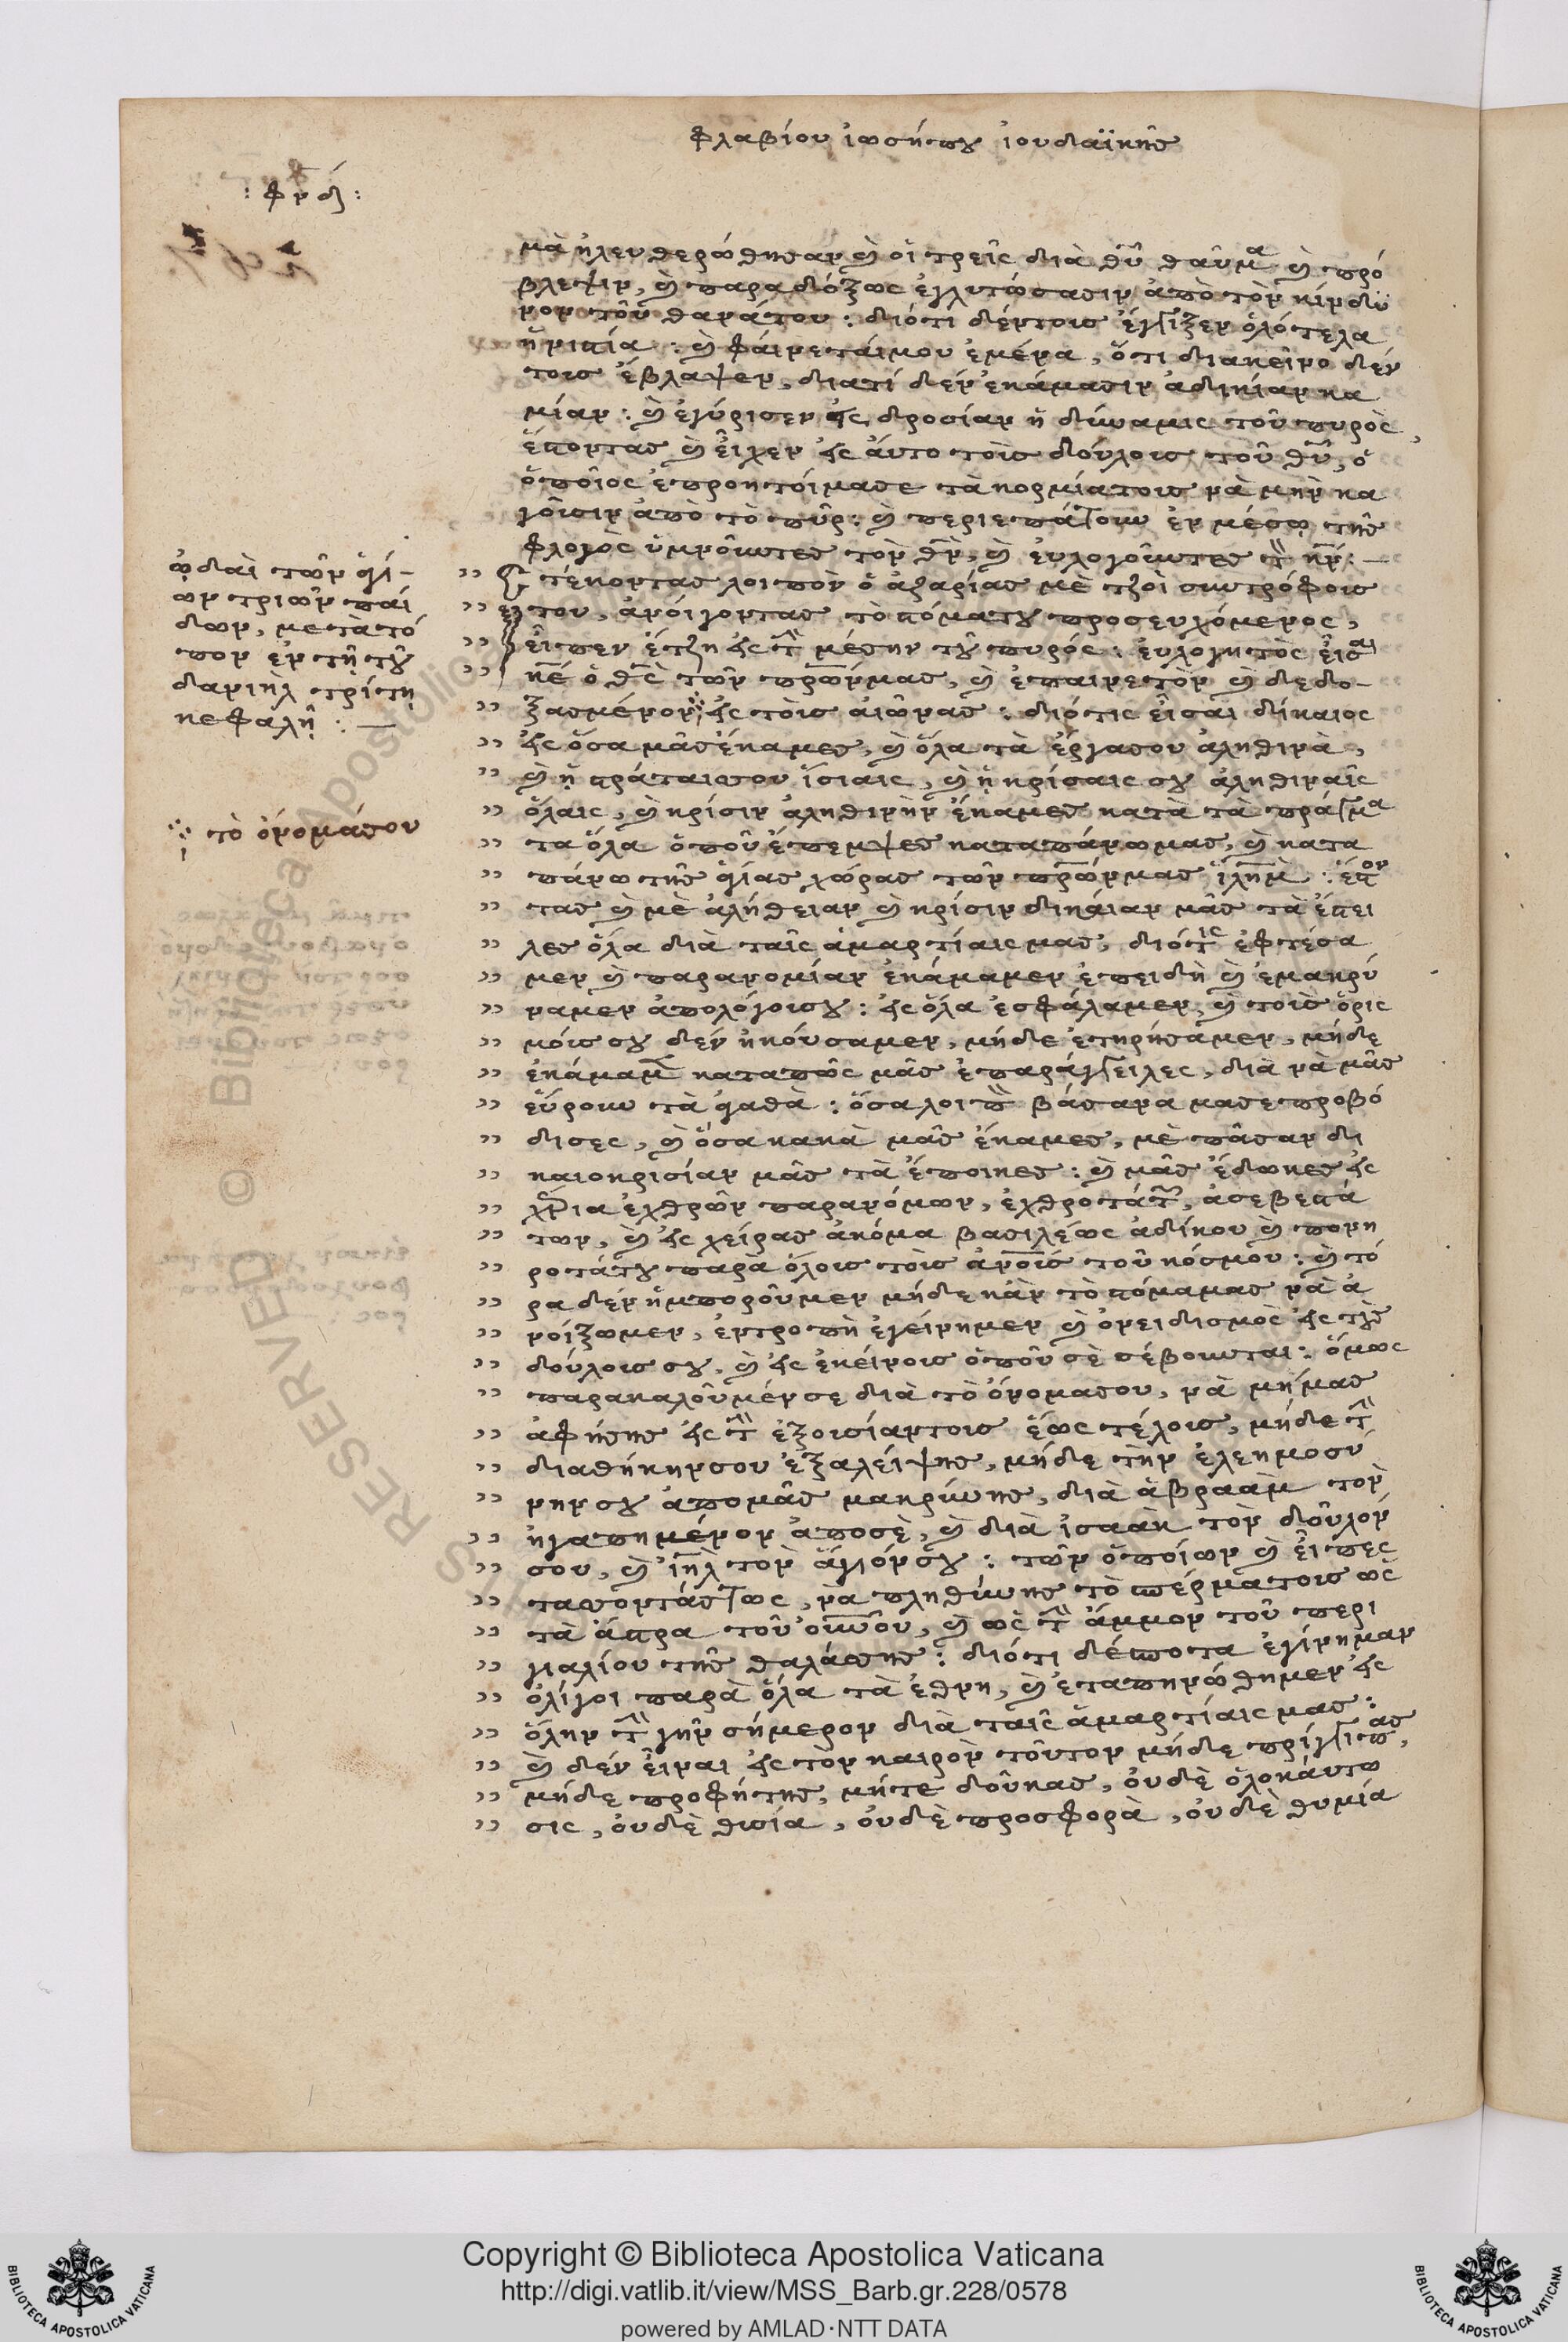 φλαβίου ἰωσήπου ἰουδαϊκῆς
: φν δ :
μὰ ἠλευθερώθησαν καὶ οἱ τρεῖς διὰ θῦ θαῦμα καὶ πρό
βλεψιν, καὶ παραδόξως ἐγλυτώσασιν ἀπὸ τὸν κίνδυ
νον τοῦ θανάτου : διότι δέντοις ἔγγιξεν ὁλότελα
ἡ φωτία : καὶ φαίνεταίμου ἐμένα, ὅτι διακεῖνο δέν
τοις ἔβλαψεν, διατί δὲν ἐκάμασιν ἀδικίαν κα
μίαν : καὶ ἐγύρισεν εἰς δροσίαν ἡ δύναμις τοῦ πυρὸς
ἔποντας καὶ εἶχεν εἰς αὐτὸ τοὶς δούλοις τοῦ θῦ, ὁ
ὁποῖος ἐπροητοίμασε τὰ κορμίατοις νὰ μὴν κα
γοῦσιν ἀπὸ τὸ πῦρ : καὶ περιεπάτουν ἐν μέσῳ τῆς
φλογὸς ὑμνοῦντες τὸν θν, καὶ εὐλογοῦντες τὸν κν : —
ᾠδαὶ τῶν ἁγί-
ων τριῶν παί
δων, μετὰ τό
πον ἐν τῇ τοῦ
δανιὴλ τρίτῃ
κεφαλῇ : —
" στέκοντας λοιπὸν ὁ ἀζαρίας μὲ τζοὶ συντρόφοις
" του, ἀνοίγοντας τὸ στόματου προσευχόμενος,
" εἶπεν ἔτζη εἰς τὴν μέσην τοῦ πυρός : εὐλογητὸς εἶσαι
" κε ὁ θς τῶν πρωνμας, καὶ ἐπαινετὸν καὶ δεδο-
" ξασμένον ⁘ εἰς τοὶς αἰῶνας : διότις εἶσαι δίκαιος
" εἰς ὅσα μᾶς ἔκαμες, καὶ ὅλα τὰ ἔργασου ἀληθινὰ,
" καὶ ἡ στράταισου ἴσιαις, καὶ ἡ κρίσαις σου ἀληθιναῖς
⁘ τὸ ὀνομάσου
" ὅλαις, καὶ κρίσιν ἀληθινὴν ἔκαμες κατὰ τὰ πράγμα
" τα ὅλα ὁποῦ ἔπεμψες καταπάνωμας, καὶ κατα
" πάνω τῆς ἁγίας χώρας τῶν πρωνμας ἱλημ : ἔστον
" τας καὶ μὲ ἀλήθειαν καὶ κρίσιν δικαίαν μᾶς τὰ ἔστει
" λες ὅλα διὰ ταῖς ἁμαρτίαις μας, διότις ἐφτέσα
" μεν καὶ παρανομίαν ἐκάμαμεν ἐπειδὴ καὶ ἐμακρύ
" ναμεν ἀπολόγοισου : εἰς ὅλα ἐσφάλαμεν, καὶ τοὶς ὁρις
" μόις σου δὲν ἠκούσαμεν, μήδε ἐτηρήσαμεν, μήδε
" ἐκάμαμεν καταπῶς μᾶς ἐπαράγγειλες, διὰ νὰ μᾶς
" εὕρουν τὰ ἀγαθὰ : ὅσα λοιπὸν βάσανα μασεπροβό
" δισες, καὶ ὅσα κακὰ μᾶς ἔκαμες, μὲ πᾶσαν δι
" καιοκρισίαν μᾶς τὰ ἔποικες : καὶ μᾶς ἔδωκες εἰς
" χέρια ἐχθρῶν παρανόμων, ἐχθροτάτων, ἀσεβεστά
" των, καὶ εἰς χεῖρας ἀκόμα βασιλέως ἀδίκου καὶ πονη
" ροτάτου παρὰ ὅλοις τοὶς ἀνοῖς τοῦ κόσμου : καὶ τό
" ρα δὲν ἠμποροῦμεν μήδε κὰν τὸ στόμαμας νὰ ἀ
" νοίξωμεν, ἐντροπὴ ἐγείνημεν καὶ ὀνειδισμὸς εἰς τοὺς
" δούλοις σου, καὶ εἰς ἐκείνοις ὁποῦ σὲ σέβουνται : ὅμως
" παρακαλοῦμένσε διὰ τὸ ὄνομασου, νὰ μήμας
" ἀφήσῃς εἰς τὴν ἐξουσίαντοις ἕως τέλοις, μήδε τὴν
" διαθήκηνσου ἐξαλείψῃς, μήδε τὴν ἐλεημοσύ
" νηνσου ἀπομᾶς μακρύνῃς, διὰ ἀβραὰμ τὸν
" ἠγαπημένον ἀποσὲ, καὶ διὰ ἰσαὰκ τὸν δοῦλόν
" σου, καὶ ἰηλ τὸν ἅγιόνσου : τῶν ὁποίων καὶ εἶπες
" τασοντάς τως, νὰ πληθύνῃς τὸ σπέρματοις ὡς
" τὰ ἄστρα τοῦ οὐνοῦ, καὶ ὡς τὴν ἄμμον τοῦ περι
" γιαλίου τῆς θαλάσσης : διότι δέσποτα ἐγίνημαν
" ὀλίγοι παρὰ ὅλα τὰ ἔθνη, καὶ ἐταπηνώθημεν εἰς
" ὅλην τὴν γῆν σήμερον διὰ ταῖς ἁμαρτίαις μας :
" καὶ δὲν εἶναι εἰς τὸν καιρὸν τοῦτον μήδε πρίγγιπας,
" μήδε προφήτης, μήτε δοῦκας, οὐδὲ ὁλοκαύτω
" σις, οὐδὲ θυσία, οὐδὲ προσφορὰ, οὐδὲ θυμία
Copyright © Biblioteca Apostolica Vaticana
http://digi.vatlib.it/view/MSS_Barb.gr.228/0578
powered by AMLAD·NTT DATA
BIBLIOTECA APOSTOLICA VATICANA
BIBLIOTECA APOSTOLICA VATICANA